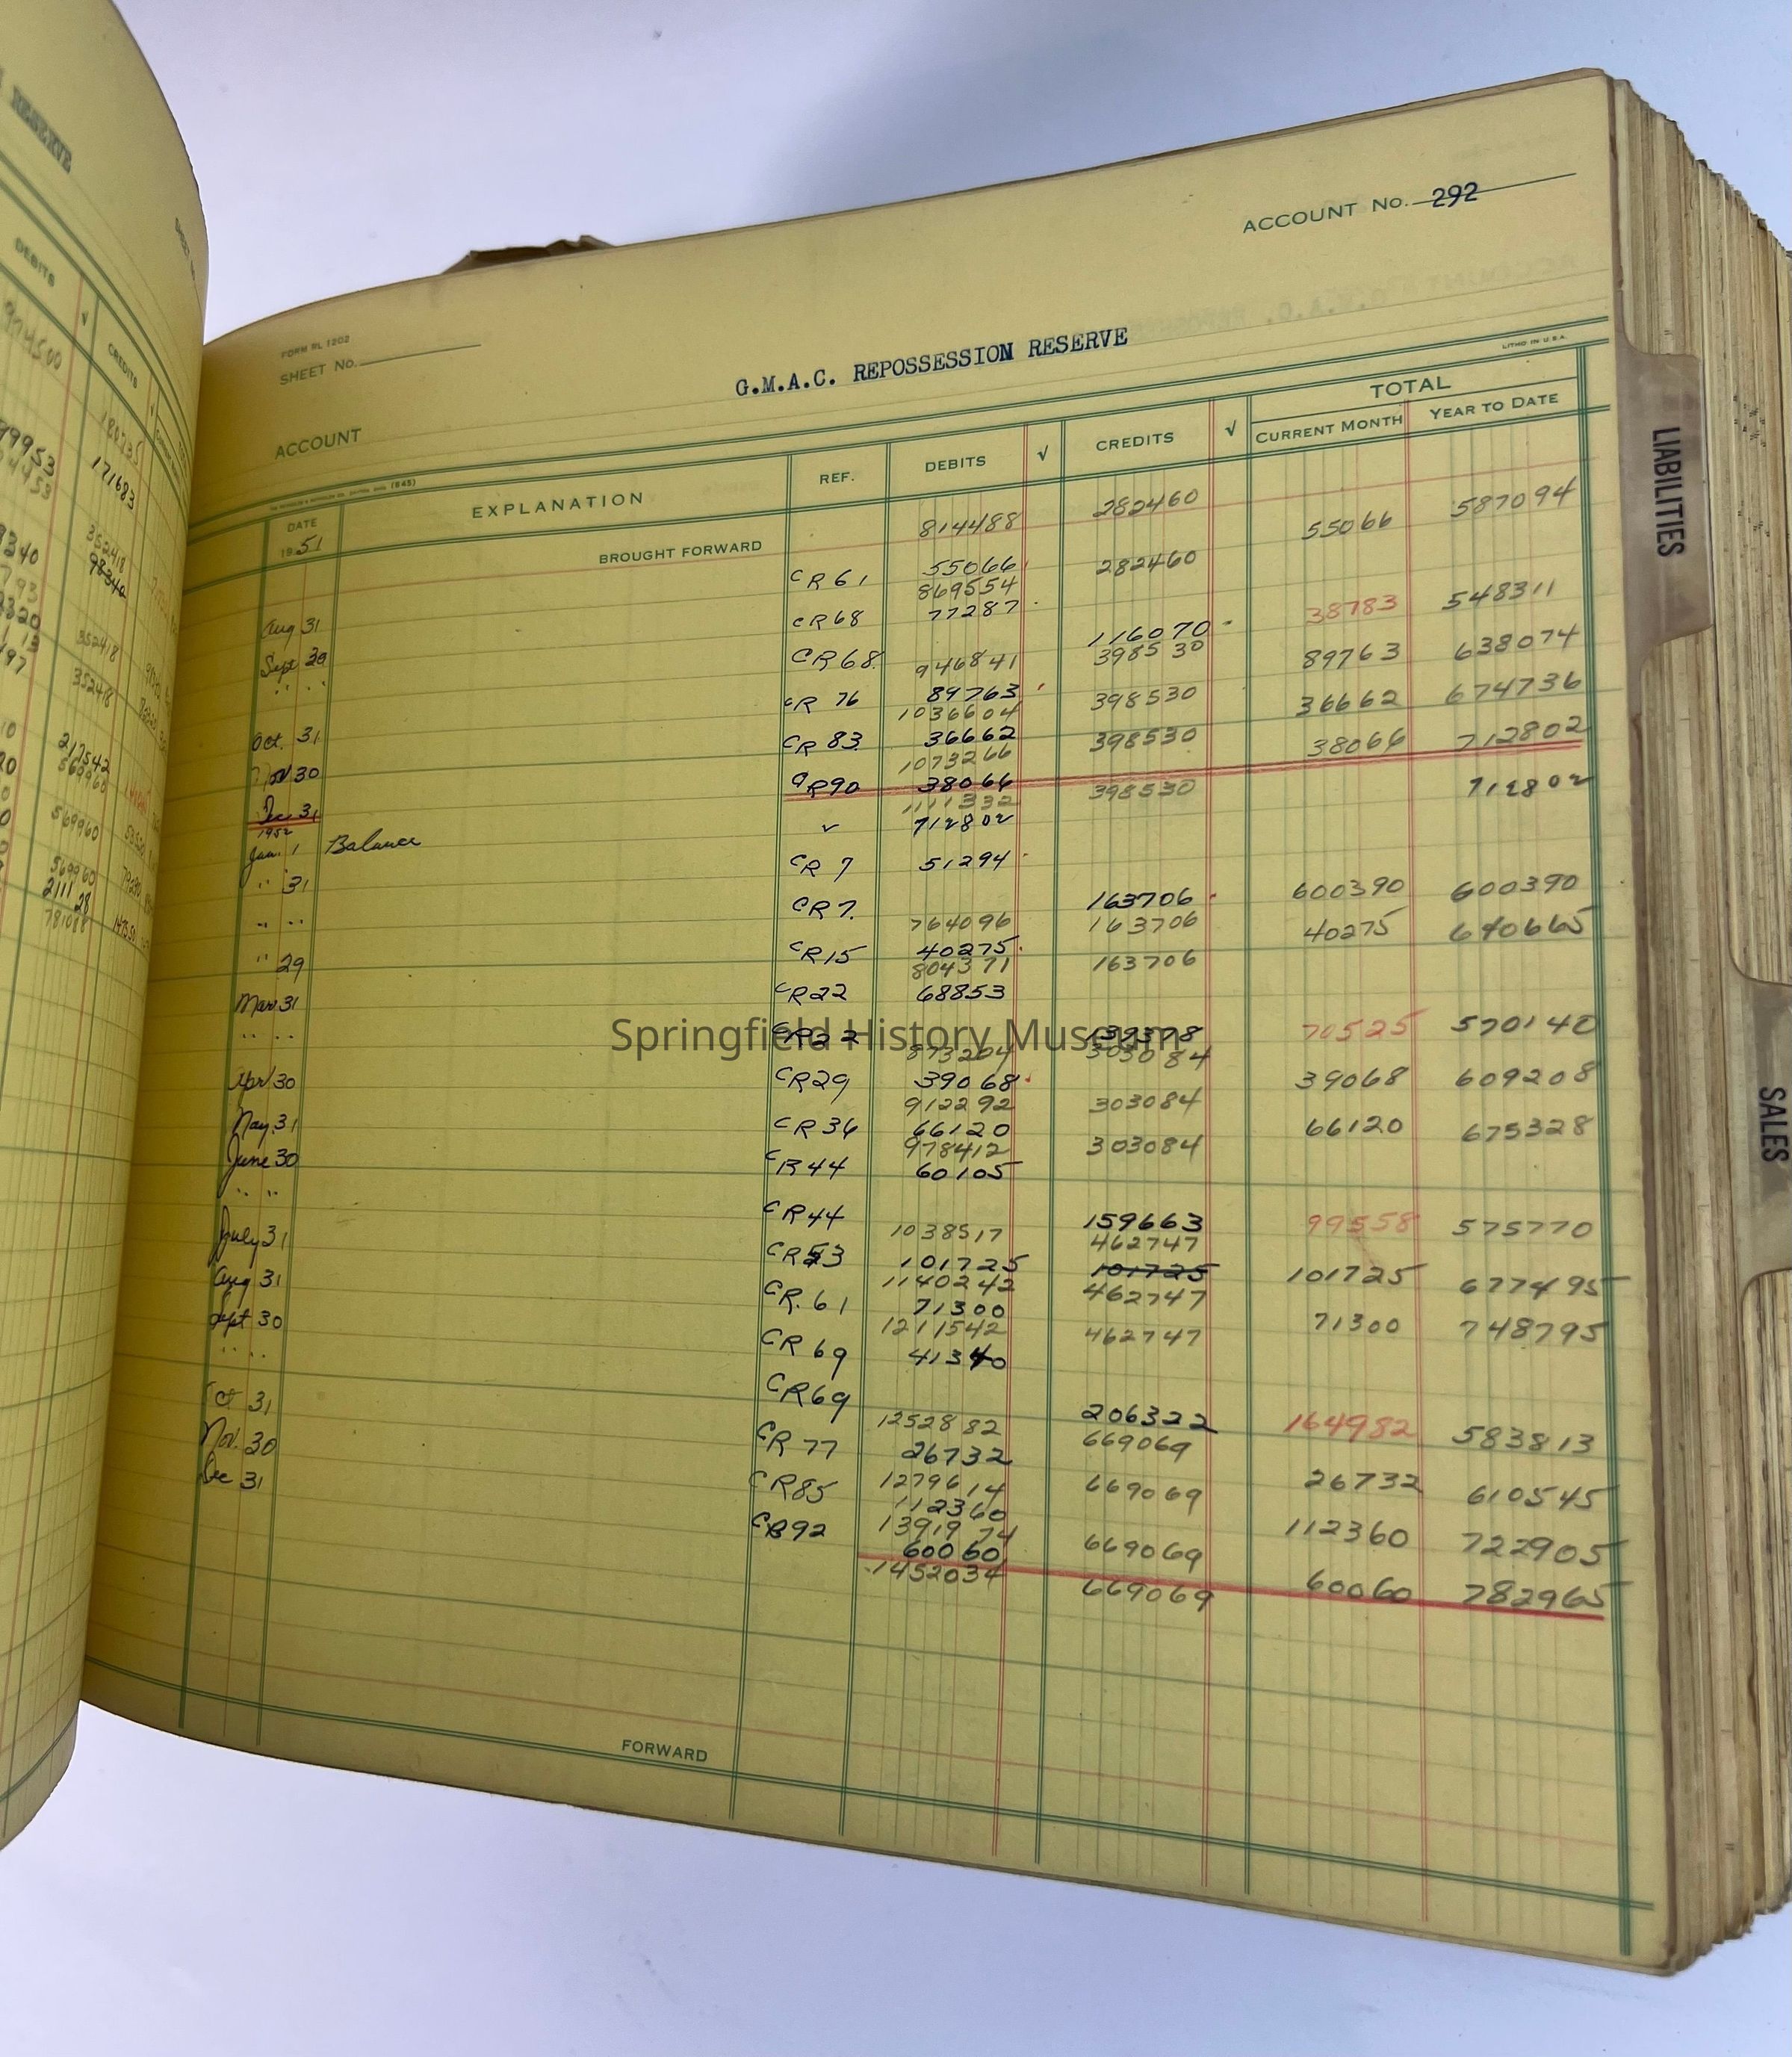 RESERVE
DEBITS
CREDITS
974500
180735
171683
352418
98340
352418
352418
217542
569960
569960
569960
211128
781088
ACCOUNT No. 292
FORM RL 1202
SHEET No.
G.M.A.C. REPOSSESSION RESERVE
LITHO IN U.S.A.
ACCOUNT
TOTAL
DATE EXPLANATION REF. DEBITS √ CREDITS √ CURRENT MONTH YEAR TO DATE
1951
BROUGHT FORWARD 814488 282460 587094
Aug 31 CR 61 55066 55066
869554 282460
Sept 30 CR 68 77287
" " CR 68 116070 38783 548311
946841 398530
Oct. 31 CR 76 89763 89763 638074
1036604 398530
Nov 30 CR 83 36662 36662 674736
1073266 398530
Dec 31 CR 90 38066 38066 712802
1111332 398530
1952
Jan. 1 Balance √ 712802 712802
" 31 CR 7 51294
" " CR 7 163706 600390 600390
764096 163706
" 29 CR 15 40275 40275 640665
804371 163706
Mar. 31 CR 22 68853
" " CR 22 139378 70525 570140
873224 303084
Apr 30 CR 29 39068 39068 609208
912292 303084
May. 31 CR 36 66120 66120 675328
978412 303084
June 30 CR 44 60105
" " CR 44 159663 99558 575770
1038517 462747
July 31 CR 53 101725 101725 101725 677495
1140242 462747
Aug 31 CR. 61 71300 71300 748795
1211542 462747
Sept 30 CR 69 41340
" " CR 69 206322 164982 583813
1252882 669069
Oct 31 CR 77 26732 26732 610545
1279614 669069
Nov. 30 CR 85 112360 112360 722905
1391974 669069
Dec 31 CR 92 60060 60060 782965
1452034 669069
FORWARD
LIABILITIES
SALES
Springfield History Museum